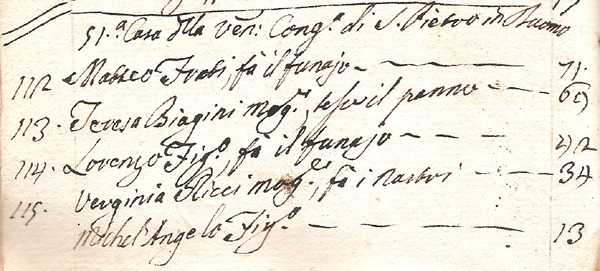 51.a Casa della Ven: Cong.e di S. Pietro in Duomo
112 Matteo Frati, fà il funajo — 71.
113. Teresa Biagini mog.e, tesse il panno — 69
114. Lorenzo Fig.o, fà il funajo — 42
115. Verginia Ricci mog.e, fà i nastri — 34
Michel'Angelo Fig.o — 13